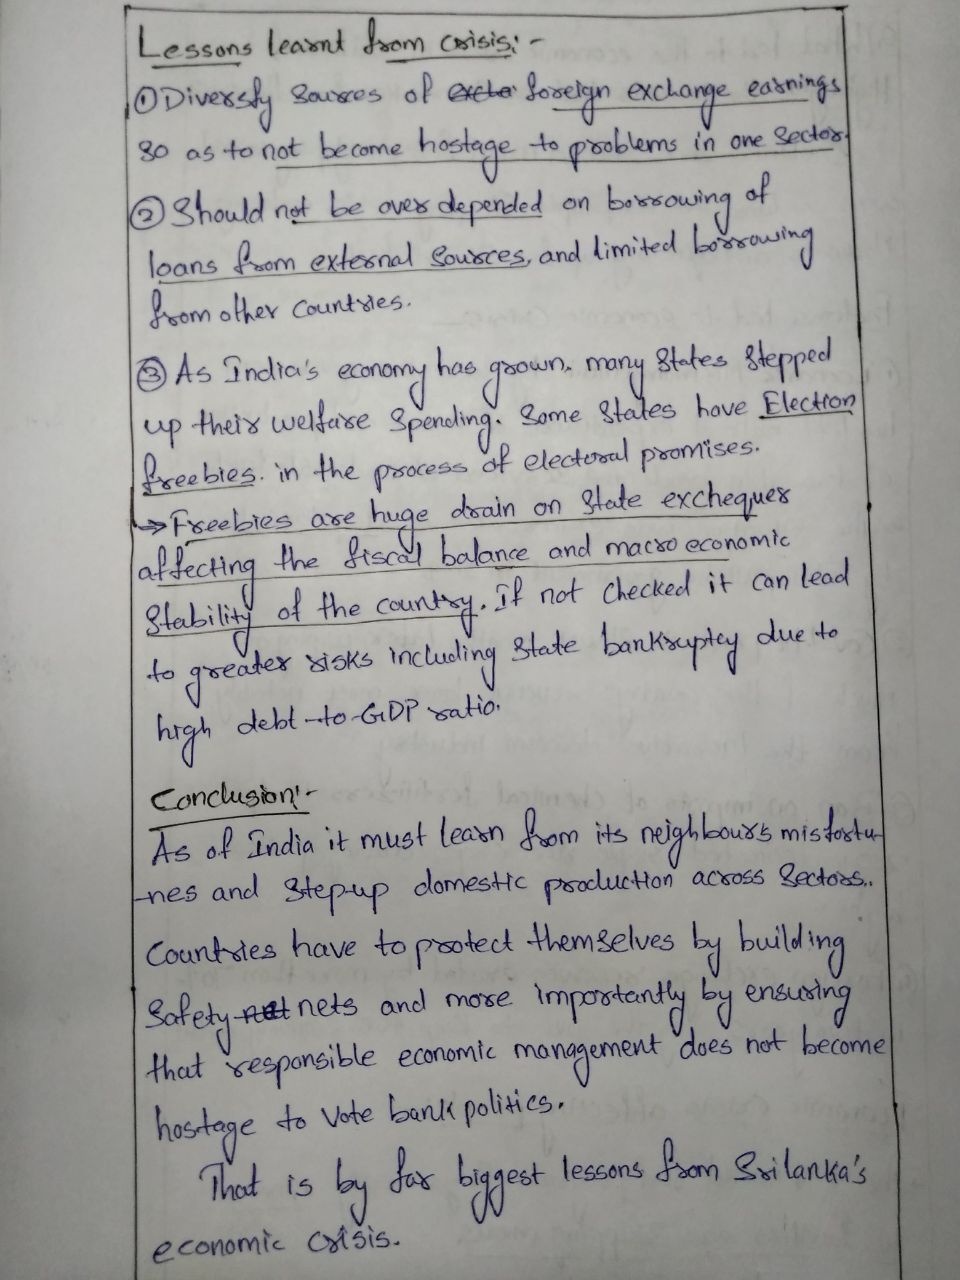 Lessons learnt from crisis:-
① Diversfy Sources of foreign exchange earnings
so as to not become hostage to problems in one Sector.
② Should not be over depended on borrowing of
loans from external Sources, and limited borrowing
from other Countries.
③ As India's economy has grown. many States Stepped
up their welfare Spending. Some States have Election
freebies. in the process of electoral promises.
→ Freebies are huge drain on State exchequer
affecting the fiscal balance and macro economic
Stability of the country. If not checked it can lead
to greater risks including State bankruptcy due to
high debt-to-GDP ratio.
Conclusion:-
As of India it must learn from its neighbours misfortu-
-nes and Step-up domestic production across Sectors..
Countries have to protect themselves by building
Safety nets and more importantly by ensuring
that responsible economic management does not become
hostage to Vote bank politics.
That is by far biggest lessons from Srilanka's
economic crisis.